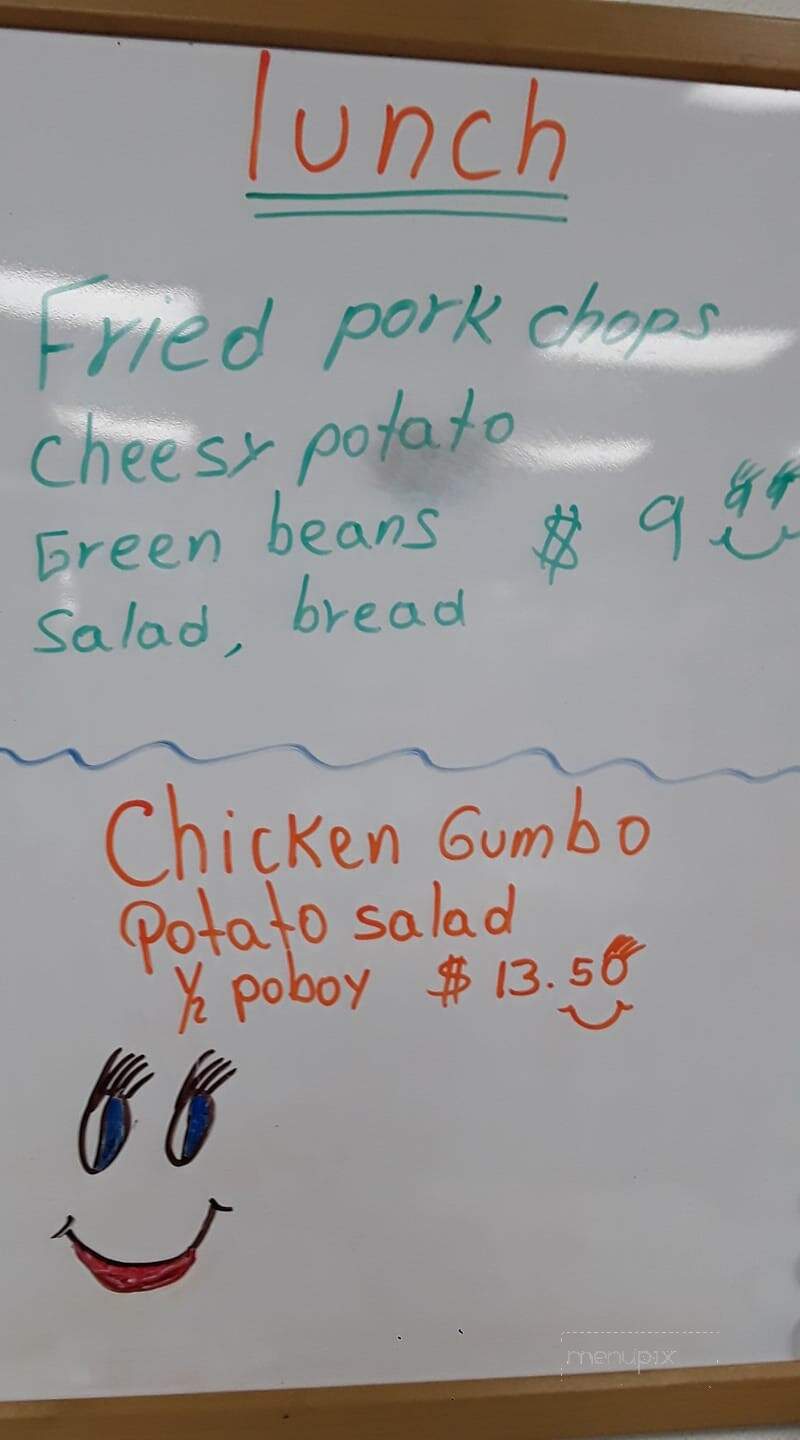 lunch
Fried pork chops
cheesy potato
Green beans $ 9
salad, bread
Chicken Gumbo
Potato salad
1/2 poboy $ 13.50
menupix